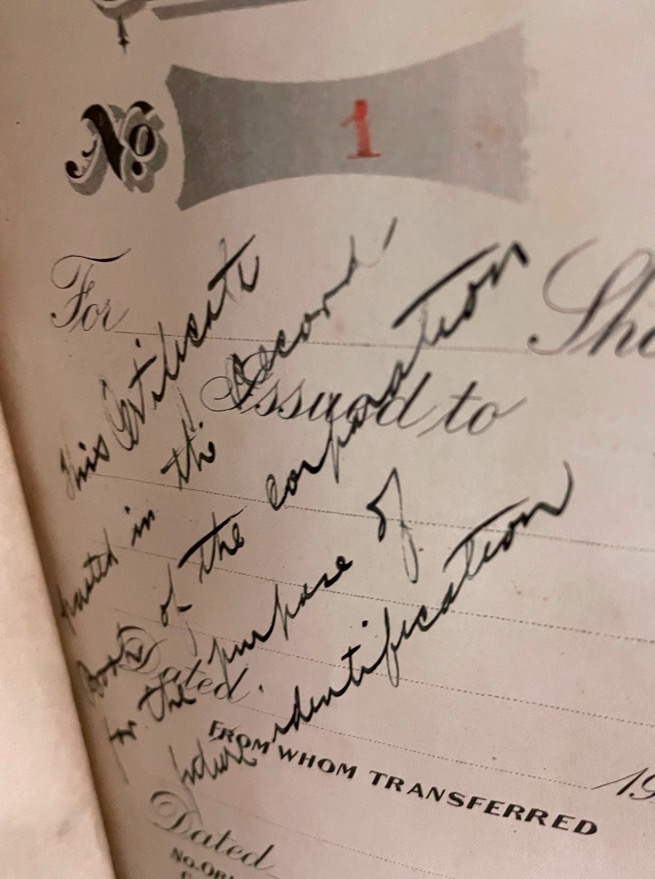 No 1
For Sha
Issued to
This Certificate
pasted in the Record
Book of the corporation
for the purpose of
future identification
Dated
19
FROM WHOM TRANSFERRED
Dated
No.